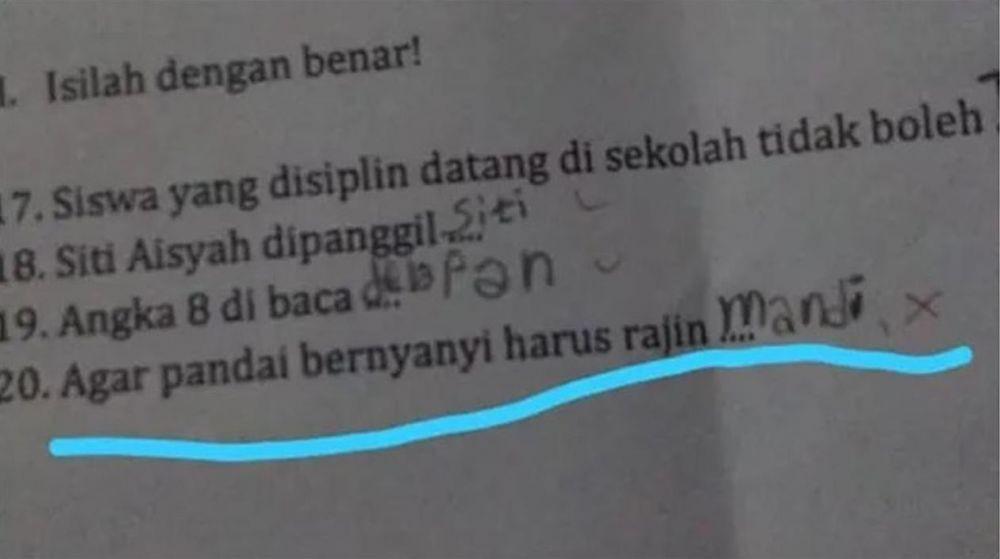 . Isilah dengan benar!
17. Siswa yang disiplin datang di sekolah tidak boleh
18. Siti Aisyah dipanggil.... Siti
19. Angka 8 di baca ....
20. Agar pandai bernyanyi harus rajin .... mandi